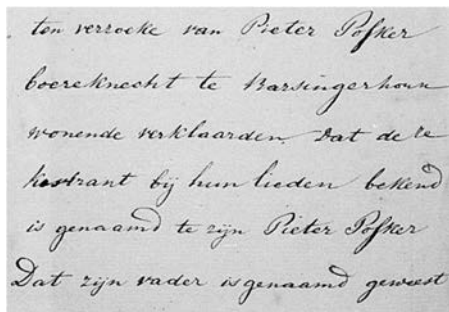 ten versoeke van Pieter Posker
boereknecht te Barsingerhoun
wonende verklaarden. Dat de re
kestrant bij hun lieden bekend
is genaamd te zijn Pieter Posker
Dat zijn vader is genaamd geweest